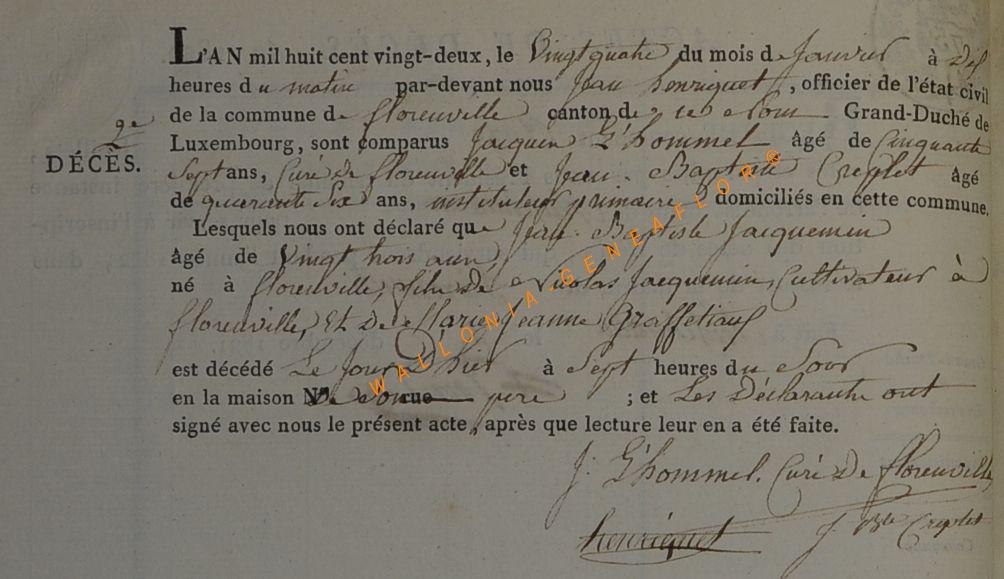 L'AN mil huit cent vingt-deux, le Vingt quatre du mois de Janvier à dix
heures du matin par-devant nous Jean henriquet, officier de l'état civil
9e
DÉCÈS.
de la commune de florenville canton de Grand-Duché de
Luxembourg, sont comparus Jacques G'hommel âgé de Cinquante
Sept ans, Curé de florenville et Jean-Baptiste Creplet âgé
de quarante Six ans, instituteur primaire, domiciliés en cette commune.
Lesquels nous ont déclaré que Jean-Baptiste Jacquemin
âgé de Vingt trois ans,
né à florenville, fils de Nicolas Jacquemin, Cultivateur à
florenville, Et de Marie Jeanne
est décédé Le Jour D'hier à Sept heures du Soir
en la maison N.° De Son rue pere ; et Les Déclarants ont
signé avec nous le présent acte, après que lecture leur en a été faite.
J. G'hommel. Curé de florenville
henriquet J Bte Creplet
WALLONIA-GENEAFLOR®